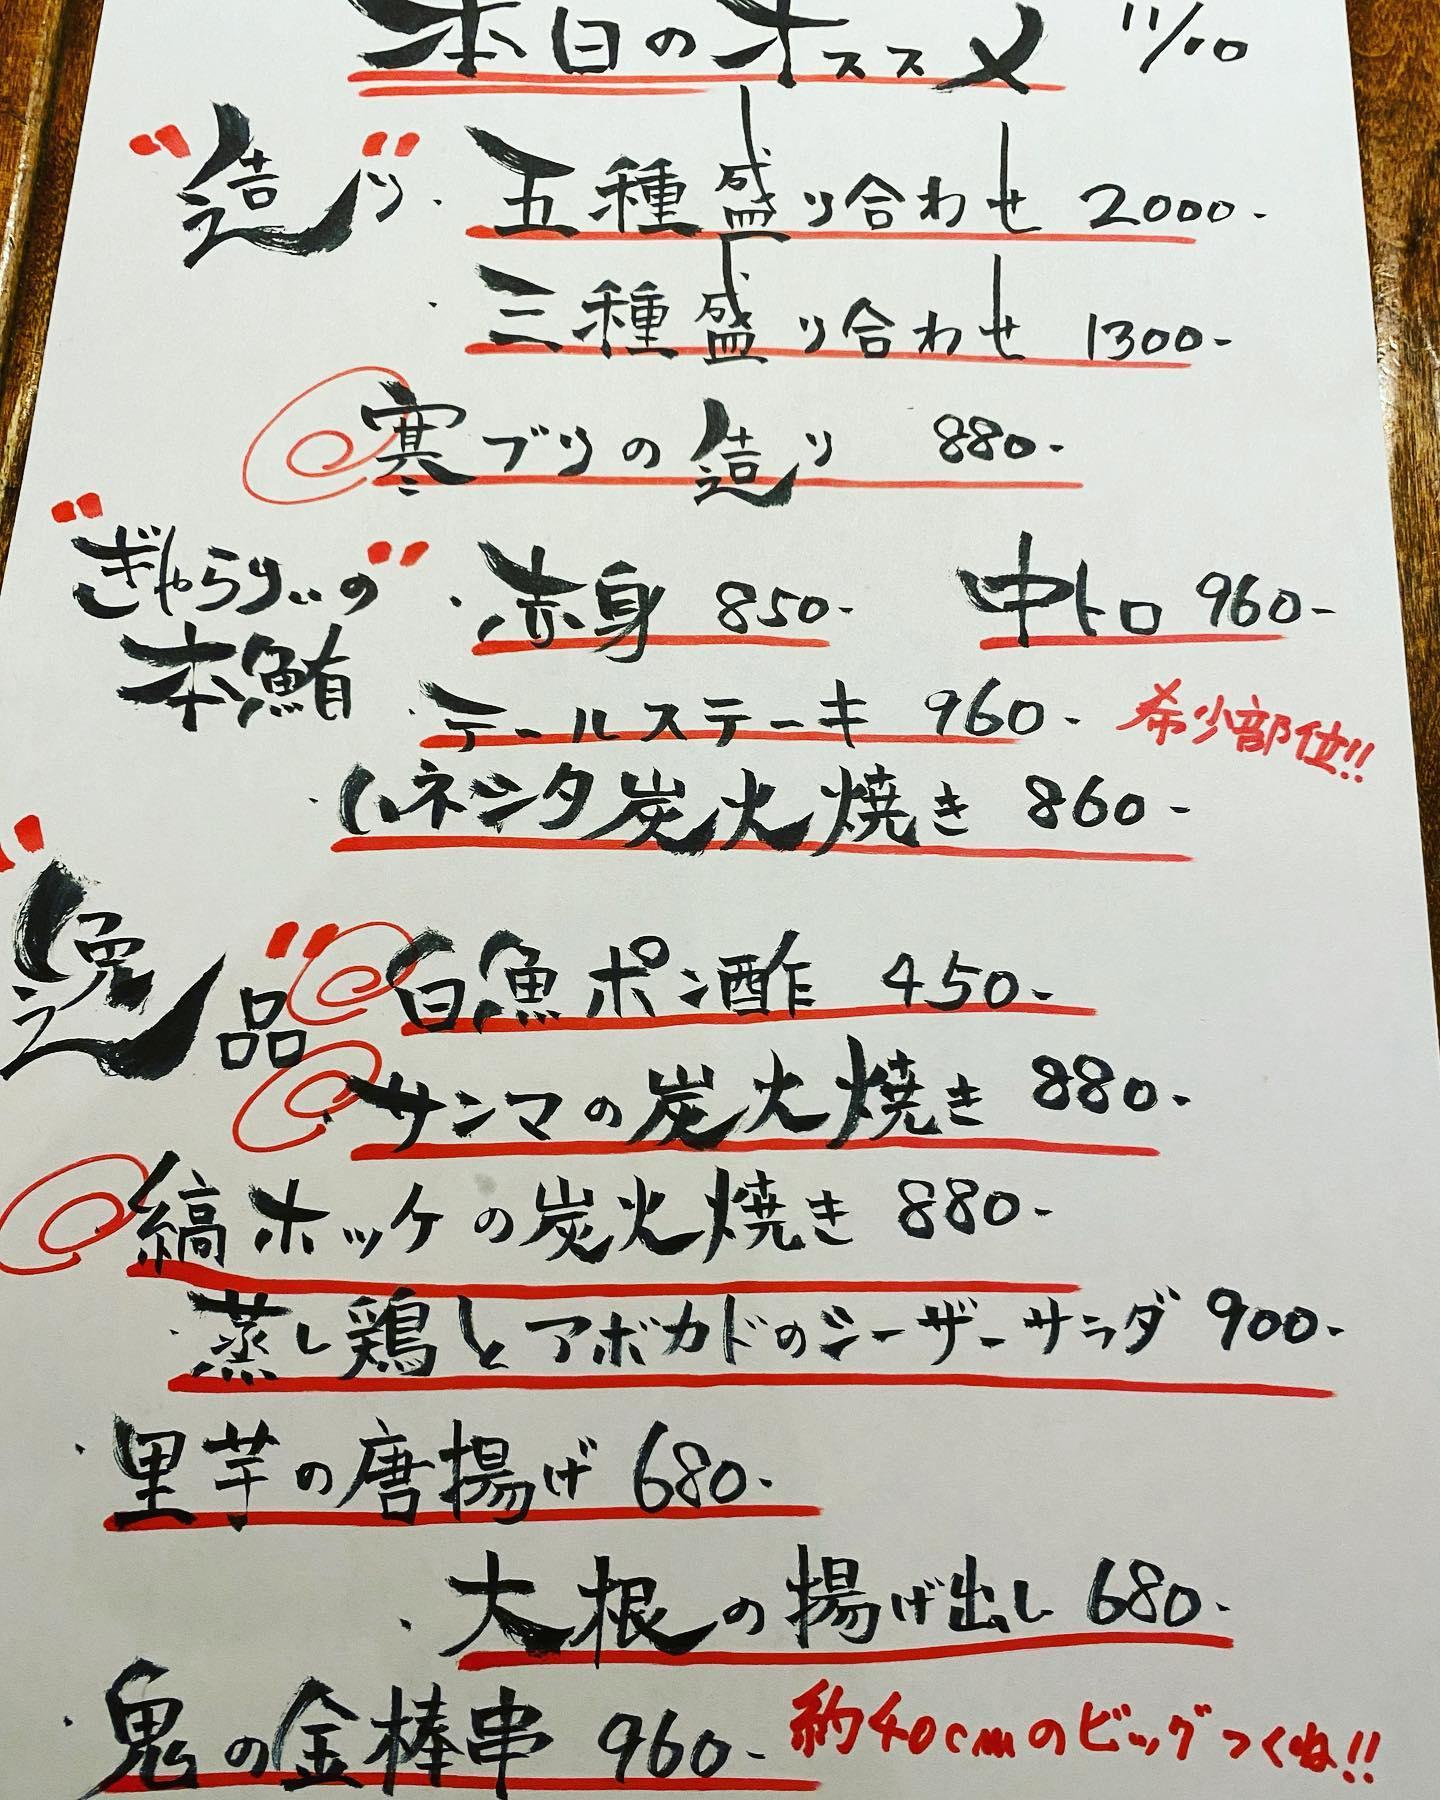 本日のオススメ 11/10
"造り" ・五種盛り合わせ 2000-
・三種盛り合わせ 1300-
寒ブリの造り 880-
"ぎゃらりぃの" ・赤身 850- 中トロ 960-
本鮪
・テールステーキ 960- 希少部位!!
・ハネシタ炭火焼き 860-
"逸品" 白魚ポン酢 450-
・サンマの炭火焼き 880-
縞ホッケの炭火焼き 880-
・蒸し鶏とアボカドのシーザーサラダ 900-
・里芋の唐揚げ 680-
・大根の揚げ出し 680-
・鬼の金棒串 960- 約40cmのビッグつくね!!